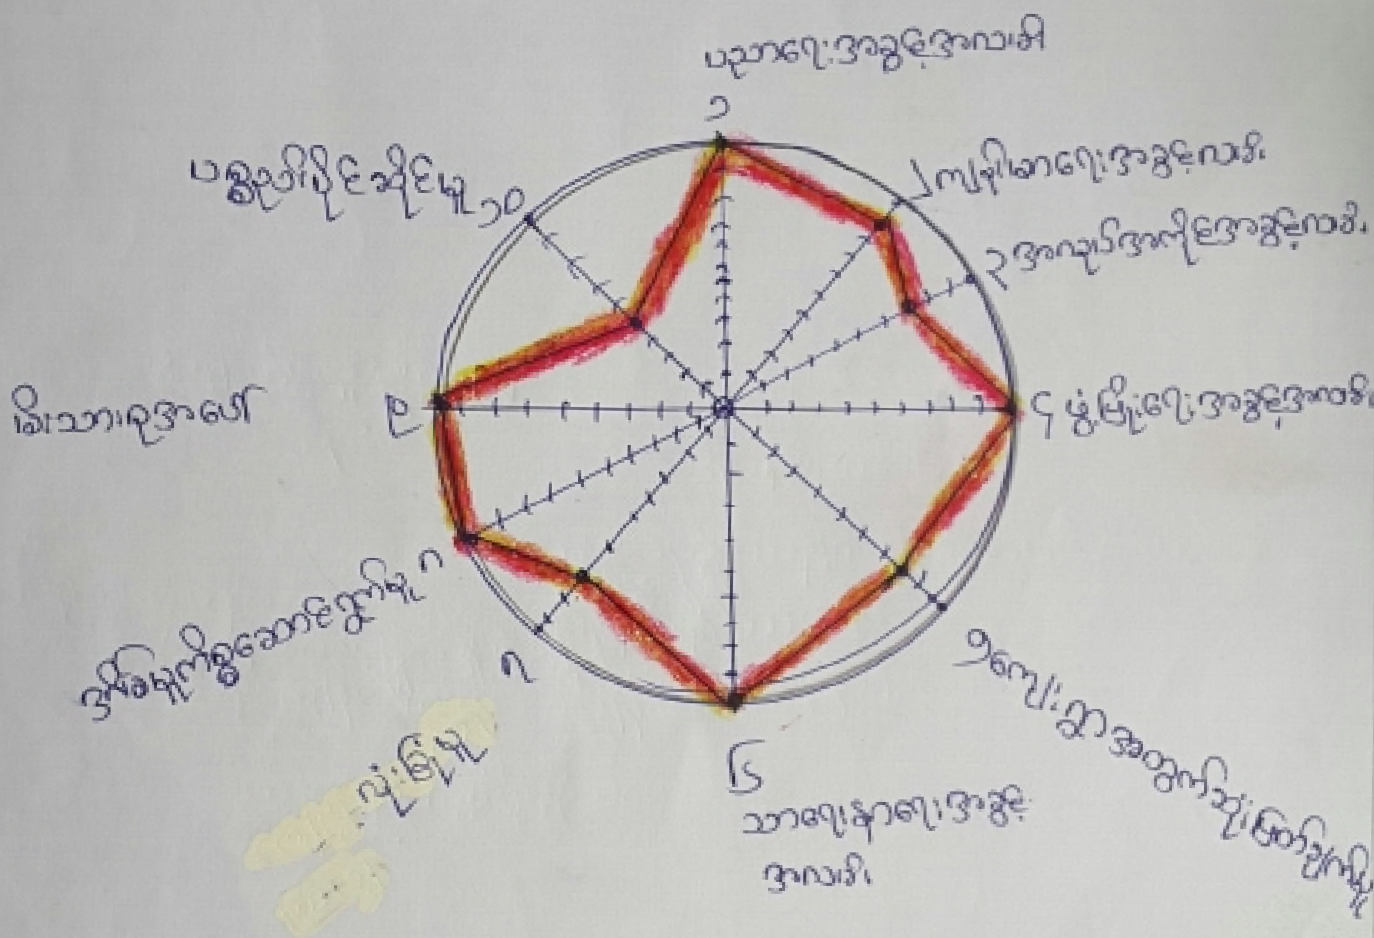 ပညာရေးအခွင့်အလမ်း
၁
၂ ကျန်းမာရေးအခွင့်လမ်း
၃ အလုပ်အကိုင်အခွင့်လမ်း
၄ ဖွံ့ဖြိုးရေးအခွင့်အလမ်း
၅ ကျေးရွာအတွက်ဆုံးဖြတ်ချက်မှု
၆
သာရေးနာရေးအခွင့်
အလမ်း
၇
လုံခြုံမှု
၈
အိမ်မှုကိစ္စဆောင်ရွက်မှု
၉
မိသားစုအပေါ်
၁၀
ပစ္စည်းပိုင်ဆိုင်မှု